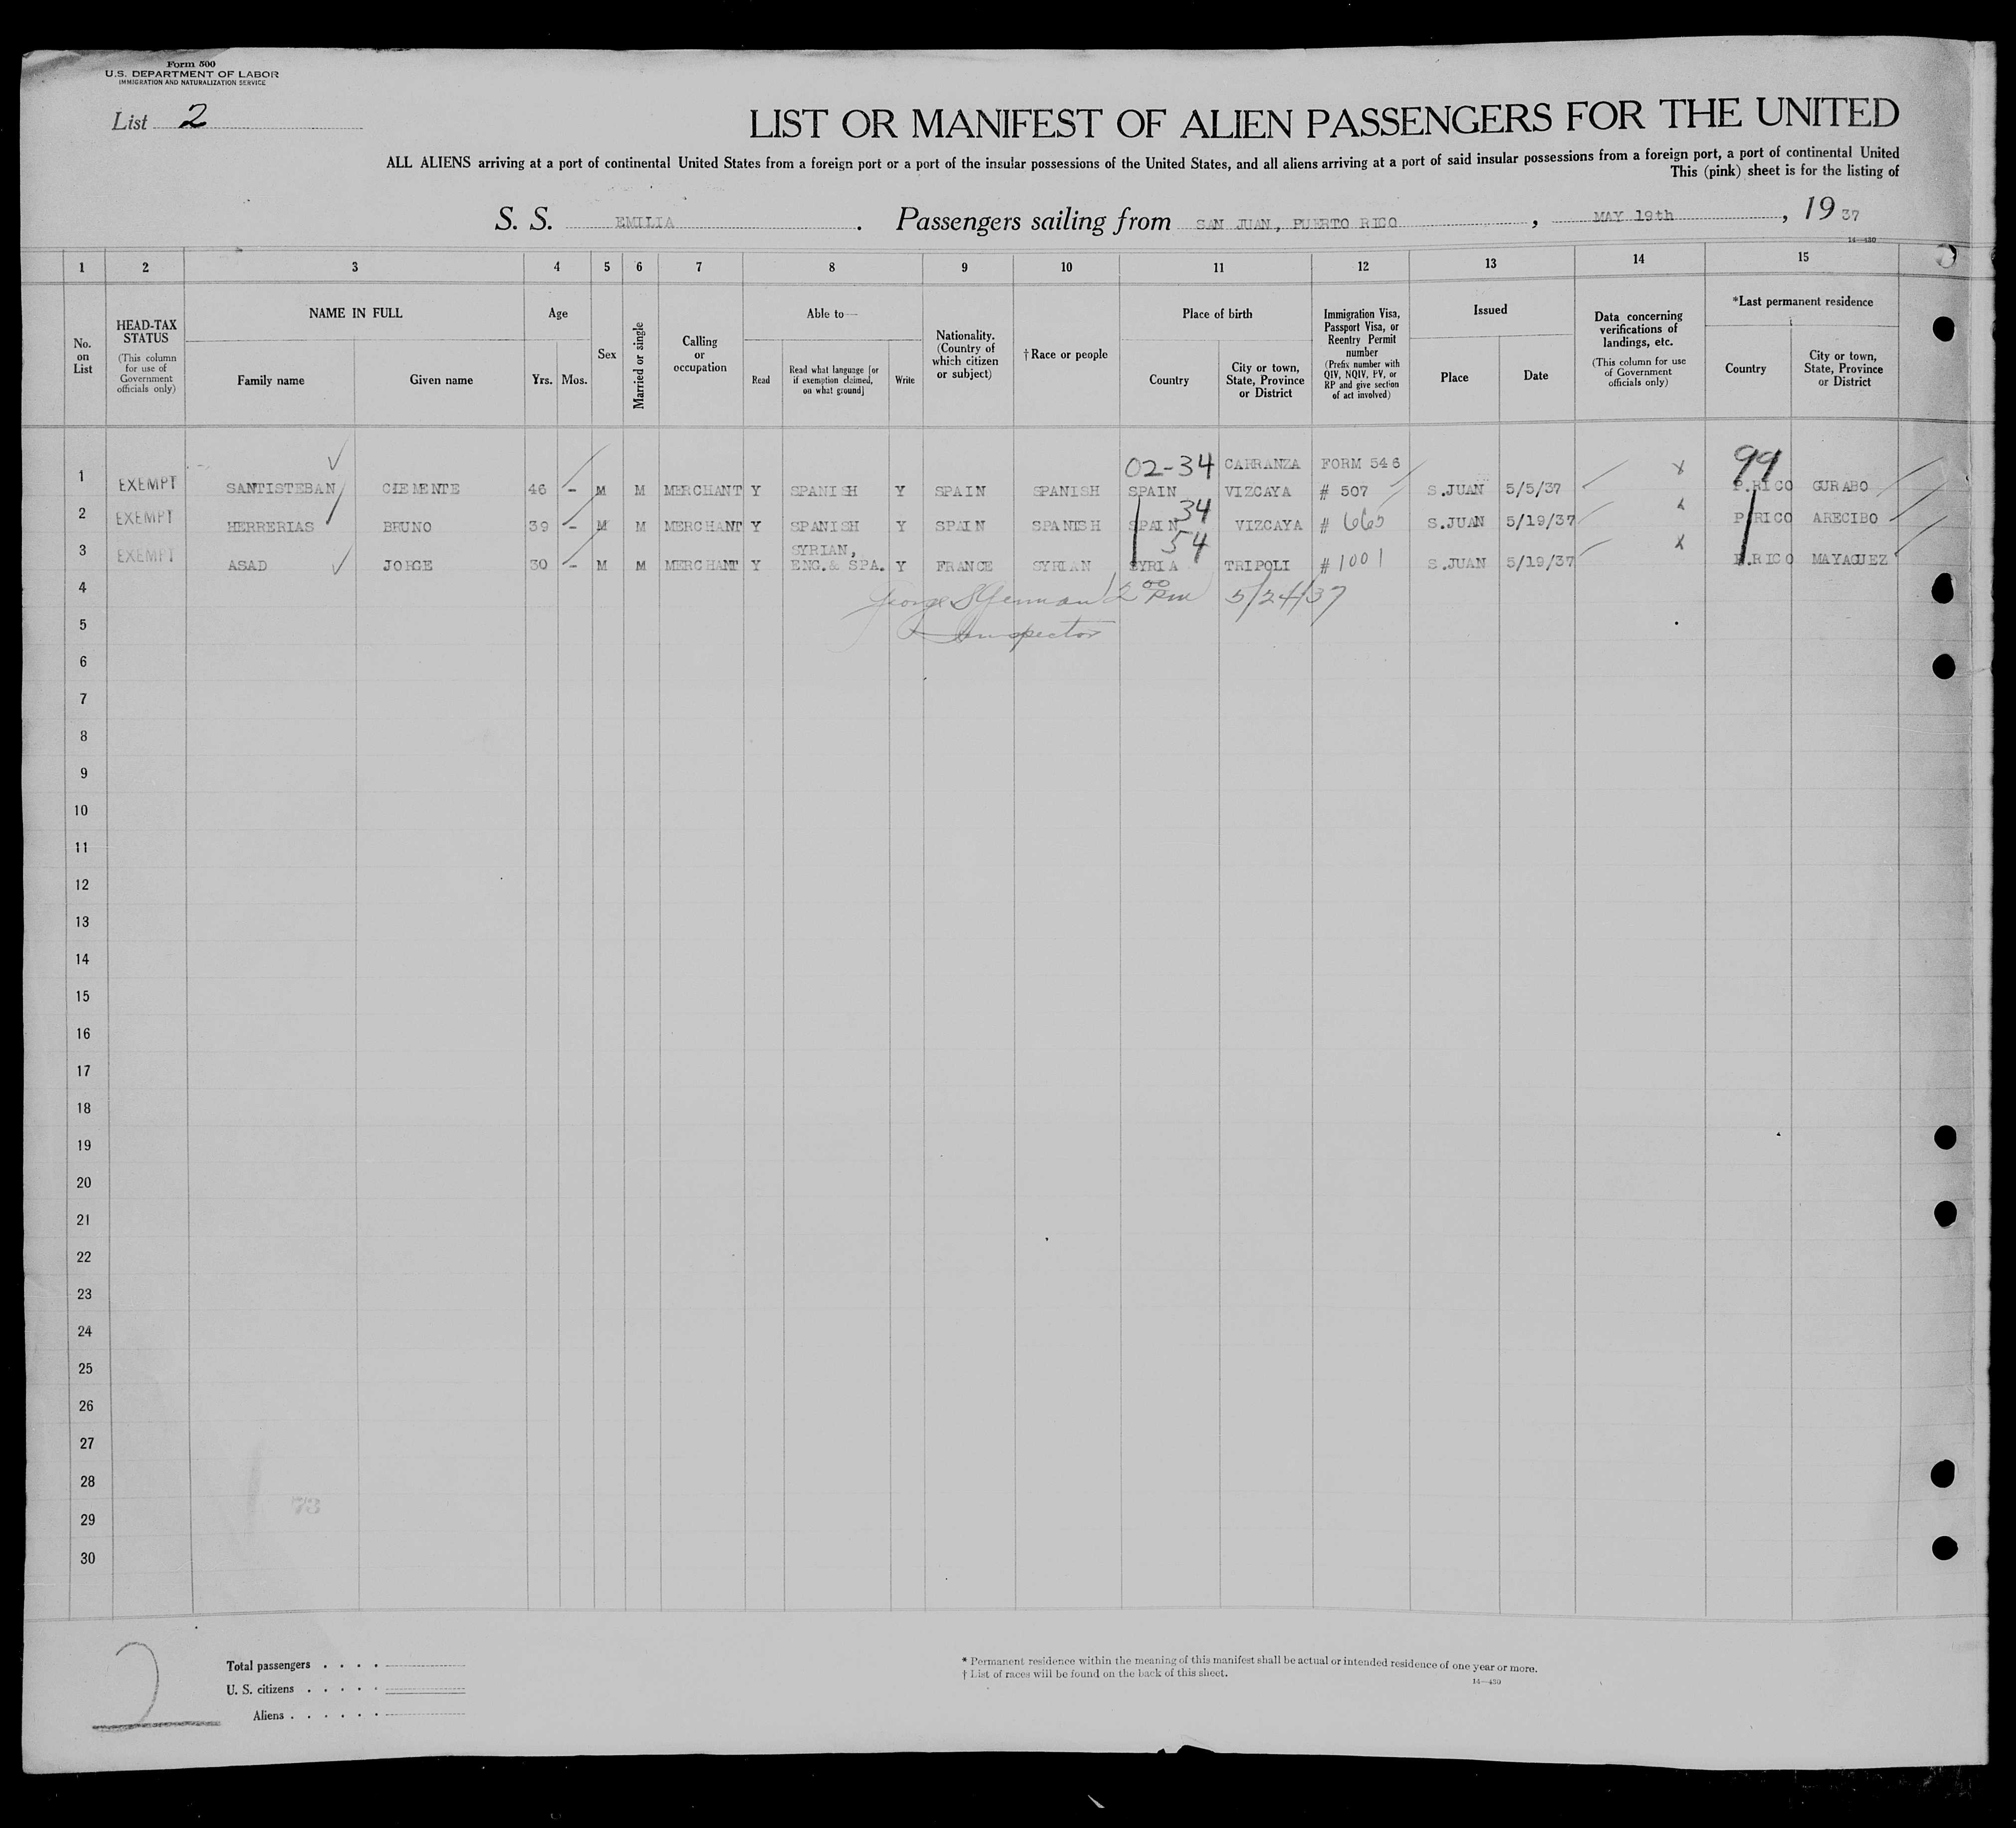 Form 500
U.S. DEPARTMENT OF LABOR
IMMIGRATION AND NATURALIZATION SERVICE
List 2
LIST OR MANIFEST OF ALIEN PASSENGERS FOR THE UNITED
ALL ALIENS arriving at a port of continental United States from a foreign port or a port of the insular possessions of the United States, and all aliens arriving at a port of said insular possessions from a foreign port, a port of continental United
This (pink) sheet is for the listing of
S. S. EMILIA. Passengers sailing from SAN JUAN, PUERTO RICO, MAY 19th, 19 37
14—430
1 2 3 4 5 6 7 8 9 10 11 12 13 14 15
No. on List
HEAD-TAX STATUS (This column for use of Government officials only)
NAME IN FULL
Family name
Given name
Age
Yrs. Mos.
Sex
Married or single
Calling or occupation
Able to—
Read
Read what language [or if exemption claimed, on what ground]
Write
Nationality. (Country of which citizen or subject)
†Race or people
Place of birth
Country
City or town, State, Province or District
Immigration Visa, Passport Visa, or Reentry Permit number (Prefix number with QIV, NQIV, PV, or RP and give section of act involved)
Issued
Place
Date
Data concerning verifications of landings, etc. (This column for use of Government officials only)
*Last permanent residence
Country
City or town, State, Province or District
02-34 CARRANZA FORM 546 99
1 EXEMPT SANTISTEBAN CLEMENTE 46 - M M MERCHANT Y SPANISH Y SPAIN SPANISH SPAIN VIZCAYA # 507 S.JUAN 5/5/37 x P.RICO GURABO
34
2 EXEMPT HERRERIAS BRUNO 39 - M M MERCHANT Y SPANISH Y SPAIN SPANISH SPAIN VIZCAYA # S.JUAN 5/19/37 x P.RICO ARECIBO
SYRIAN, 54
3 EXEMPT ASAD JORGE 30 - M M MERCHANT Y ENG.& SPA. Y FRANCE SYRIAN SYRIA TRIPOLI # 1001 S.JUAN 5/19/37 x P.RICO MAYAGUEZ
4 George 2 00 Pm 5/24/37
5 Inspector
6
7
8
9
10
11
12
13
14
15
16
17
18
19
20
21
22
23
24
25
26
27
28
29
30
2
Total passengers . . . .
U. S. citizens . . . . .
Aliens . . . . . .
* Permanent residence within the meaning of this manifest shall be actual or intended residence of one year or more.
† List of races will be found on the back of this sheet.
14—430